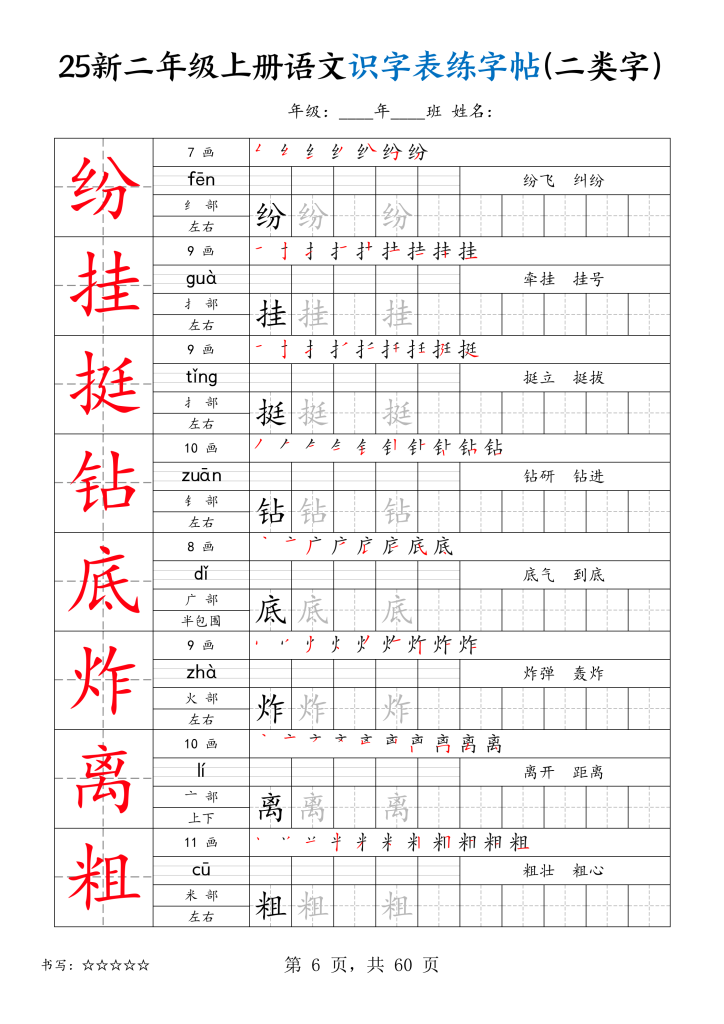 25新二年级上册语文识字表练字帖(二类字)
年级：____年____班 姓名：
纷
7 画
fēn
纷飞 纠纷
纟 部
左右
纷 纷 纷
挂
9 画
guà
牵挂 挂号
扌 部
左右
挂 挂 挂
挺
9 画
tǐng
挺立 挺拔
扌 部
左右
挺 挺 挺
钻
10 画
zuān
钻研 钻进
钅 部
左右
钻 钻 钻
底
8 画
dǐ
底气 到底
广 部
半包围
底 底 底
炸
9 画
zhà
炸弹 轰炸
火 部
左右
炸 炸 炸
离
10 画
lí
离开 距离
亠 部
上下
离 离 离
粗
11 画
cū
粗壮 粗心
米 部
左右
粗 粗 粗
书写：☆☆☆☆☆
第 6 页，共 60 页